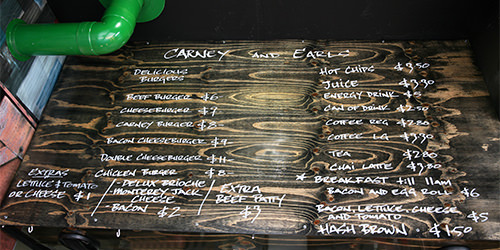 CARNEY AND EARLS
DELICIOUS
BURGERS
BEEF BURGER $6
CHEESEBURGER $7
CARNEY BURGER $8
BACON CHEESEBURGER $9
DOUBLE CHEESEBURGER $11
CHICKEN BURGER $8
EXTRAS
LETTUCE & TOMATO
OR CHEESE $1
DELUX BRIOCHE
MONTEREY JACK
CHEESE
BACON $2
EXTRA
BEEF PATTY
$3
HOT CHIPS $3.50
JUICE $3.30
ENERGY DRINK $5
CAN OF DRINK $2.50
COFFEE REG $2.80
COFFEE LG $3.30
TEA $2.80
CHAI LATTE $3.80
* BREAKFAST till 11am
BACON AND EGG ROLL $6
BACON, LETTUCE, CHEESE
AND TOMATO $5
*HASH BROWN • $1.50